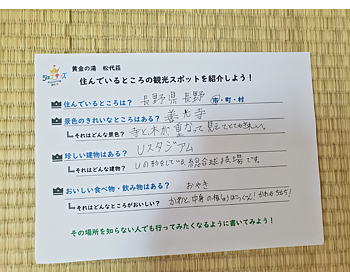 黄金の湯 松代荘
住んでいるところの観光スポットを紹介しよう！
住んでいるところは？ 長野県長野 市・町・村
景色のきれいなところはある？ 善光寺
それはどんな景色？ 寺と木が重なって見えてとてもきれい。
珍しい建物はある？ Uスタジアム
それはどんな建物？ Uの形をしている総合球技場です。
おいしい食べ物・飲み物はある？ おやき
それはどんなところがおいしい？ かわと中身の相しょうばつぐん！
その場所を知らない人でも行ってみたくなるように書いてみよう！